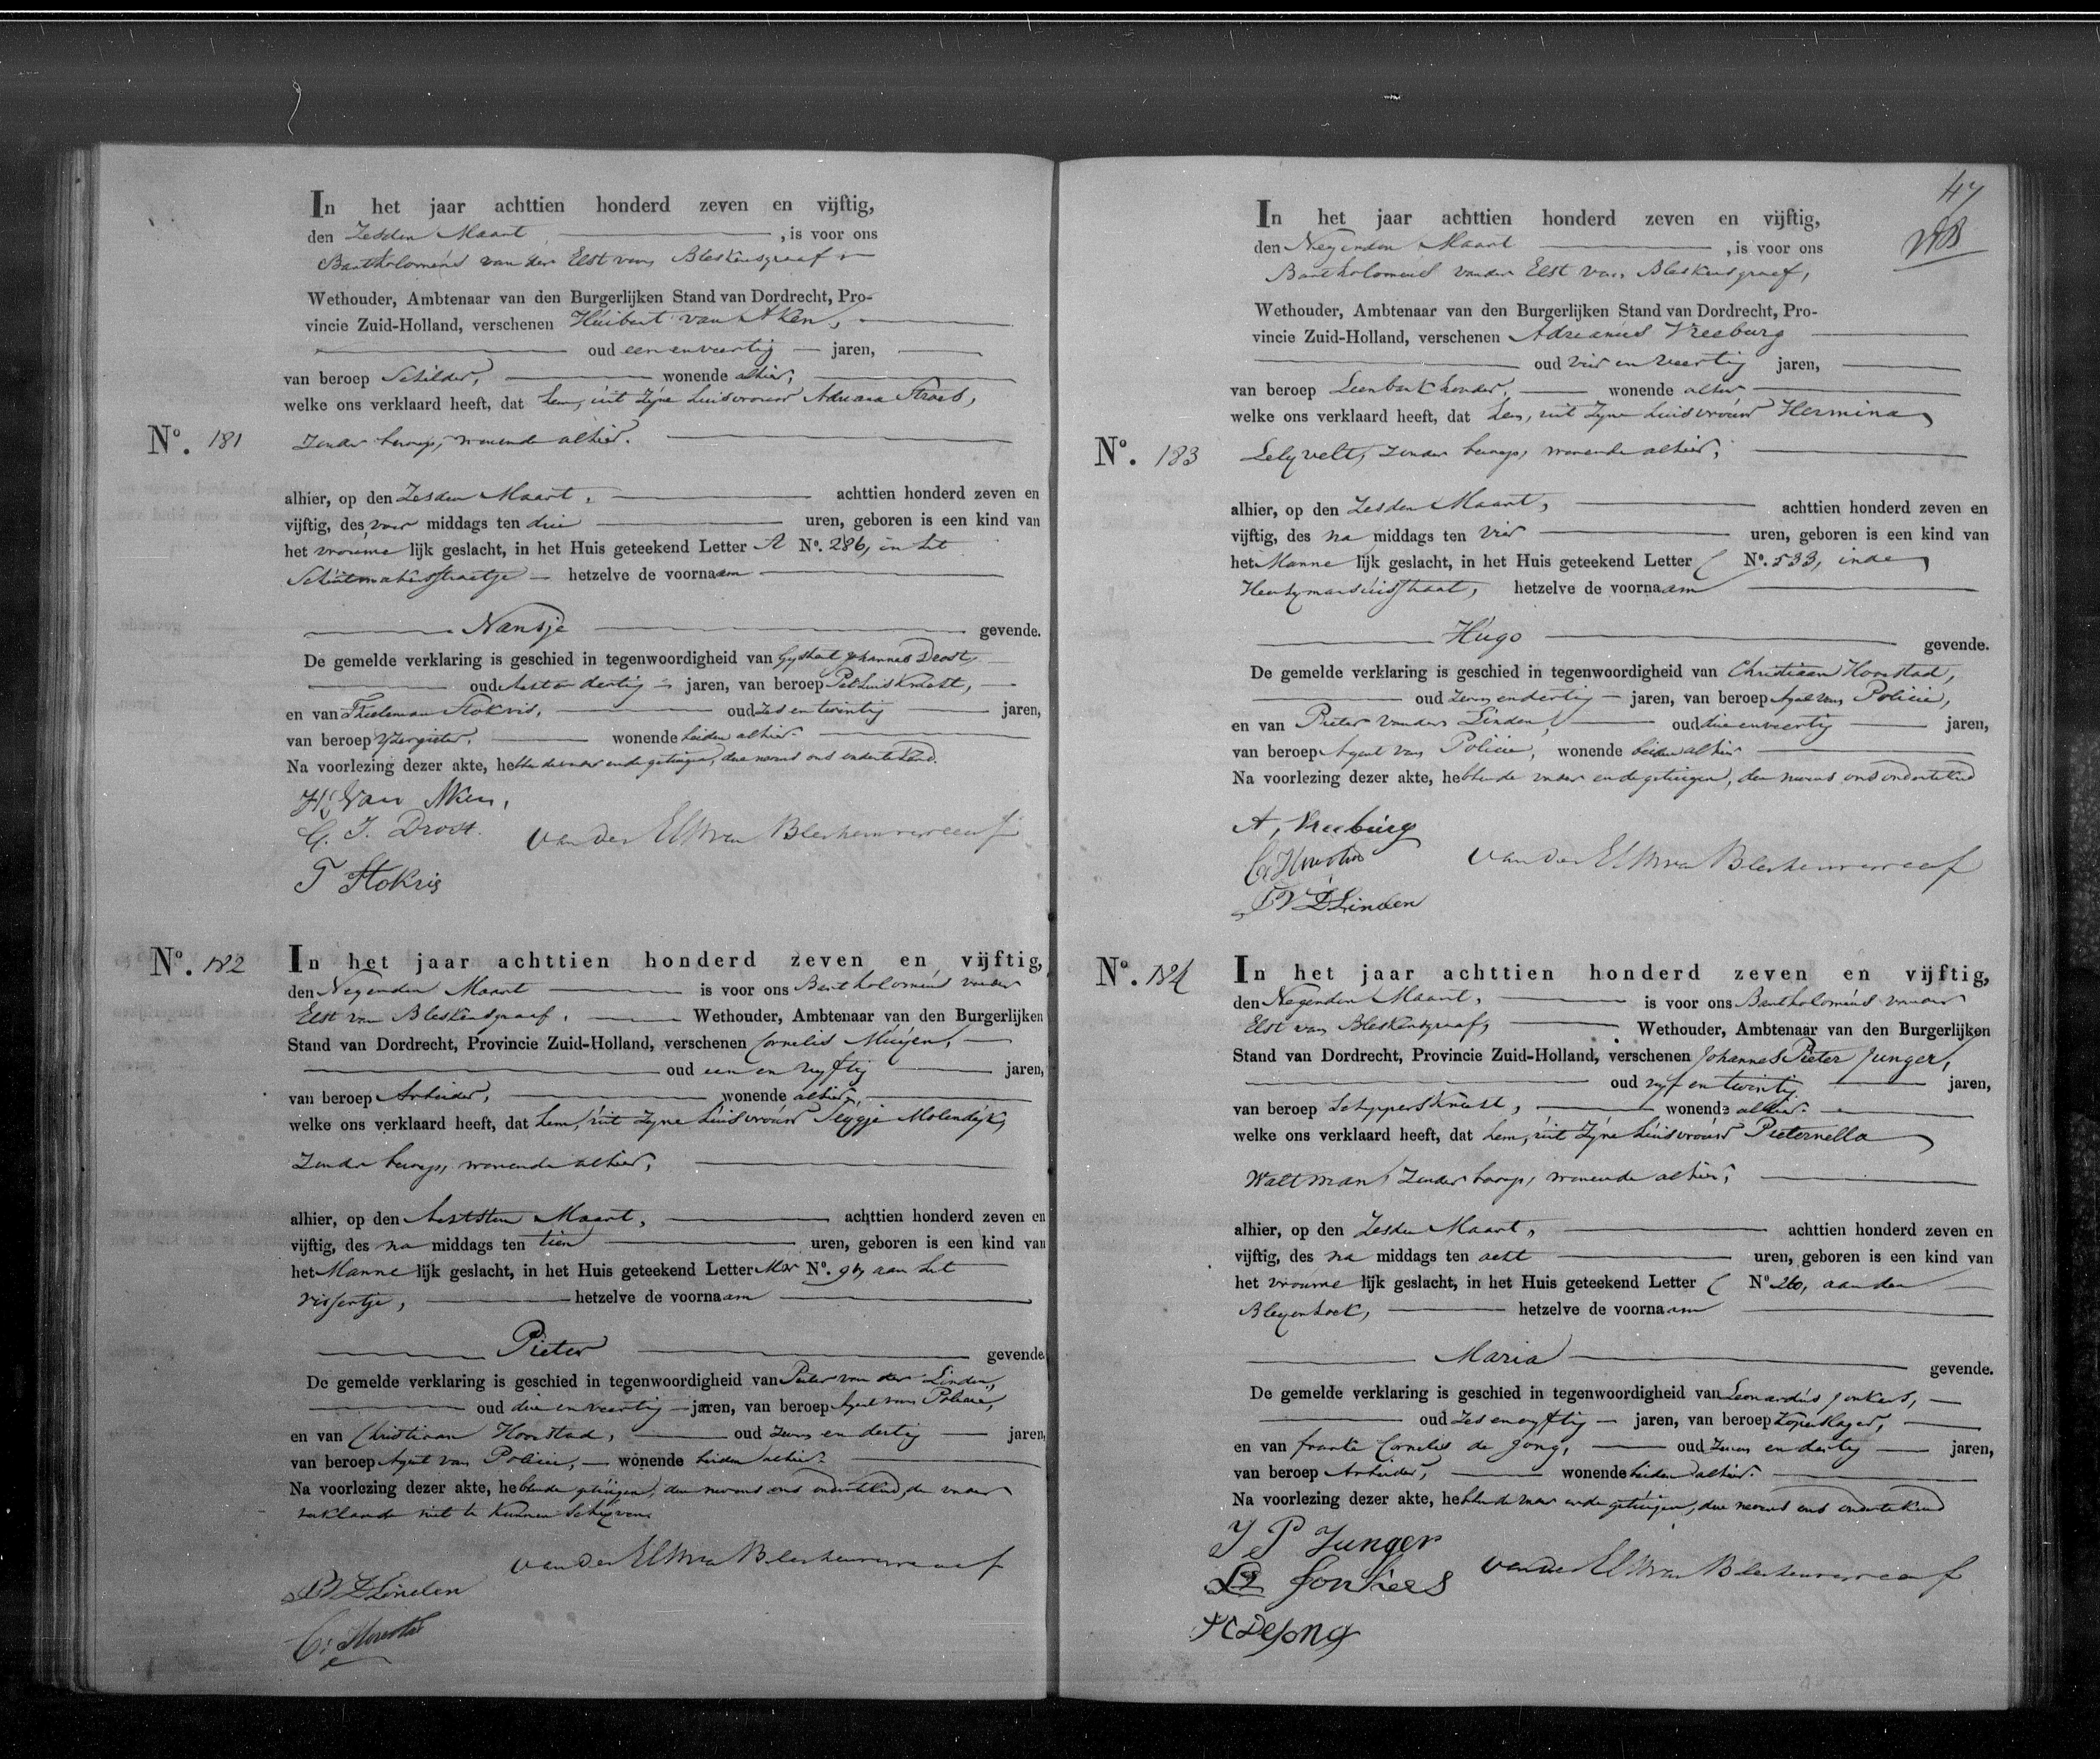 In het jaar achttien honderd zeven en vijftig,
den Zesden Maart, is voor ons
Bartholomeus van der Elst van Bleskensgraaf
Wethouder, Ambtenaar van den Burgerlijken Stand van Dordrecht, Pro-
vincie Zuid-Holland, verschenen Huibert van Aken,
oud een en veertig jaren,
van beroep Schilder, wonende alhier,
welke ons verklaard heeft, dat hem, uit zyne huisvrouw Adriana Straets,
No. 181 zonder beroep, wonende alhier.
alhier, op den Zesden Maart, achttien honderd zeven en
vijftig, des voor middags ten drie uren, geboren is een kind van
het vrouwe lijk geslacht, in het Huis geteekend Letter A No. 286, in het
hetzelve de voornaam
Nansje gevende.
De gemelde verklaring is geschied in tegenwoordigheid van Gysbert Johannes Drost,
oud acht en dertig jaren, van beroep
en van Thieleman Stokvis, oud zes en twintig jaren,
van beroep Yzergieter, wonende beiden alhier.
Na voorlezing dezer akte, hebben de vader en de getuigen, dese nevens ons onderteekend.
H. van Aken,
G. J. Drost. van der Elst van Bleskensgraaf
T Stokvis
No. 182 In het jaar achttien honderd zeven en vijftig,
den Negenden Maart is voor ons Bartholomeus van der
Elst van Bleskensgraaf, Wethouder, Ambtenaar van den Burgerlijken
Stand van Dordrecht, Provincie Zuid-Holland, verschenen Cornelis Muijen,
oud een en vyftig jaren,
van beroep Arbeider, wonende alhier,
welke ons verklaard heeft, dat hem, uit zyne huisvrouw Pleygje Molendijk,
zonder beroep, wonende alhier,
alhier, op den achtsten Maart, achttien honderd zeven en
vijftig, des na middags ten tien uren, geboren is een kind van
het Manne lijk geslacht, in het Huis geteekend Letter No. aan het
hetzelve de voornaam
Pieter gevende.
De gemelde verklaring is geschied in tegenwoordigheid van Pieter van der Linden,
oud drie en veertig jaren, van beroep Agent van Policie,
en van Christiaan Hoorstad, oud zeven en dertig jaren,
van beroep Agent van Policie, wonende beiden alhier.
Na voorlezing dezer akte, hebben de getuigen, dese nevens ons onderteekend, de vader
verklaarde niet te kunnen schryven.
van der Elst van Bleskensgraaf
P V D Linden
C: Hoorstad
47
In het jaar achttien honderd zeven en vijftig,
den Negenden Maart, is voor ons
Bartholomeus van der Elst van Bleskensgraaf,
Wethouder, Ambtenaar van den Burgerlijken Stand van Dordrecht, Pro-
vincie Zuid-Holland, verschenen Adrianus Vreeburg
oud vier en veertig jaren,
van beroep Leenbankhouder, wonende alhier
welke ons verklaard heeft, dat hem, uit zyne huisvrouw Hermina
No. 183 Lelyvelt, zonder beroep, wonende alhier,
alhier, op den Zesden Maart, achttien honderd zeven en
vijftig, des na middags ten vier uren, geboren is een kind van
het Manne lijk geslacht, in het Huis geteekend Letter C No. 533, in de
hetzelve de voornaam
Hugo gevende.
De gemelde verklaring is geschied in tegenwoordigheid van Christiaan Hoorstad,
oud zeven en dertig jaren, van beroep Agent van Policie,
en van Pieter van der Linden, oud drie en veertig jaren,
van beroep Agent van Policie, wonende beiden alhier
Na voorlezing dezer akte, hebben de vader en de getuigen, dese nevens ons onderteekend
A, Vreeburg
C: Hoorstad van der Elst van Bleskensgraaf
P V D Linden
No. 184 In het jaar achttien honderd zeven en vijftig,
den Negenden Maart, is voor ons Bartholomeus van der
Elst van Bleskensgraaf, Wethouder, Ambtenaar van den Burgerlijken
Stand van Dordrecht, Provincie Zuid-Holland, verschenen Johannes Pieter Junger,
oud vyf en twintig jaren,
van beroep Schippersknecht, wonende alhier.
welke ons verklaard heeft, dat hem, uit zyne huisvrouw Pieternella
Waltman, zonder beroep, wonende alhier,
alhier, op den Zesden Maart, achttien honderd zeven en
vijftig, des na middags ten acht uren, geboren is een kind van
het vrouwe lijk geslacht, in het Huis geteekend Letter C No 260, aan den
Bleyenhoek, hetzelve de voornaam
Maria gevende.
De gemelde verklaring is geschied in tegenwoordigheid van Leonardus Jonkers,
oud zes en vyftig jaren, van beroep Koperslager,
en van Frank Cornelis de Jong, oud zeven en dertig jaren,
van beroep Arbeider, wonende beiden alhier.
Na voorlezing dezer akte, hebben de vader en de getuigen, dese nevens ons onderteekend
J P Junger
L Jonkers van der Elst van Bleskensgraaf
F C De Jong